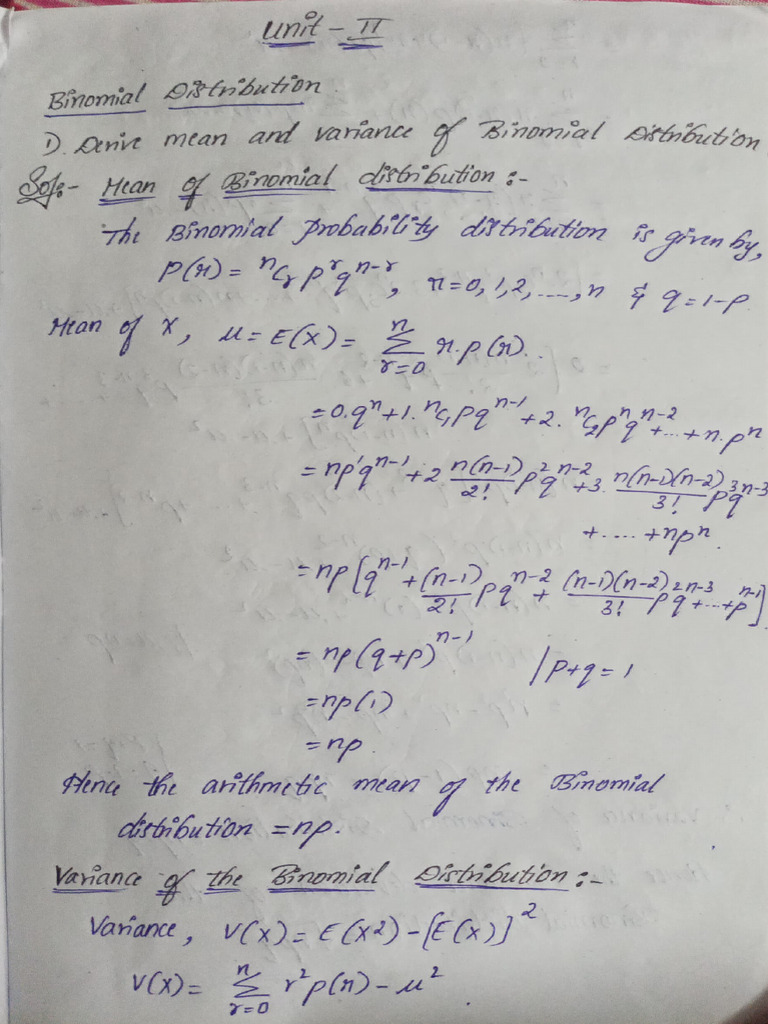 Unit - II
Binomial Distribution
1). Derive mean and variance of Binomial Distribution
Sol:- Mean of Binomial distribution :-
The Binomial Probability distribution is given by,
P(r) = ⁿCᵣ pʳ qⁿ⁻ʳ, r = 0, 1, 2, ....., n & q = 1-p.
Mean of X, μ = E(X) = Σ_{r=0}^{n} r. p(r).
= 0.qⁿ + 1. ⁿC₁ p qⁿ⁻¹ + 2. ⁿC₂ pⁿ qⁿ⁻² + ... + n. pⁿ
= np¹qⁿ⁻¹ + 2 n(n-1)/2! p² qⁿ⁻² + 3. n(n-1)(n-2)/3! p³ qⁿ⁻³
+ .... + npⁿ.
= np [qⁿ⁻¹ + (n-1)/2! p qⁿ⁻² + (n-1)(n-2)/3! p² qⁿ⁻³ + ... + pⁿ⁻¹]
= np (q+p)ⁿ⁻¹ / p+q = 1
= np (1)
= np.
Hence the arithmetic mean of the Binomial
distribution = np.
Variance of the Binomial Distribution :-
Variance, V(X) = E(X²) - [E(X)]²
V(X) = Σ_{r=0}^{n} r² p(r) - μ²